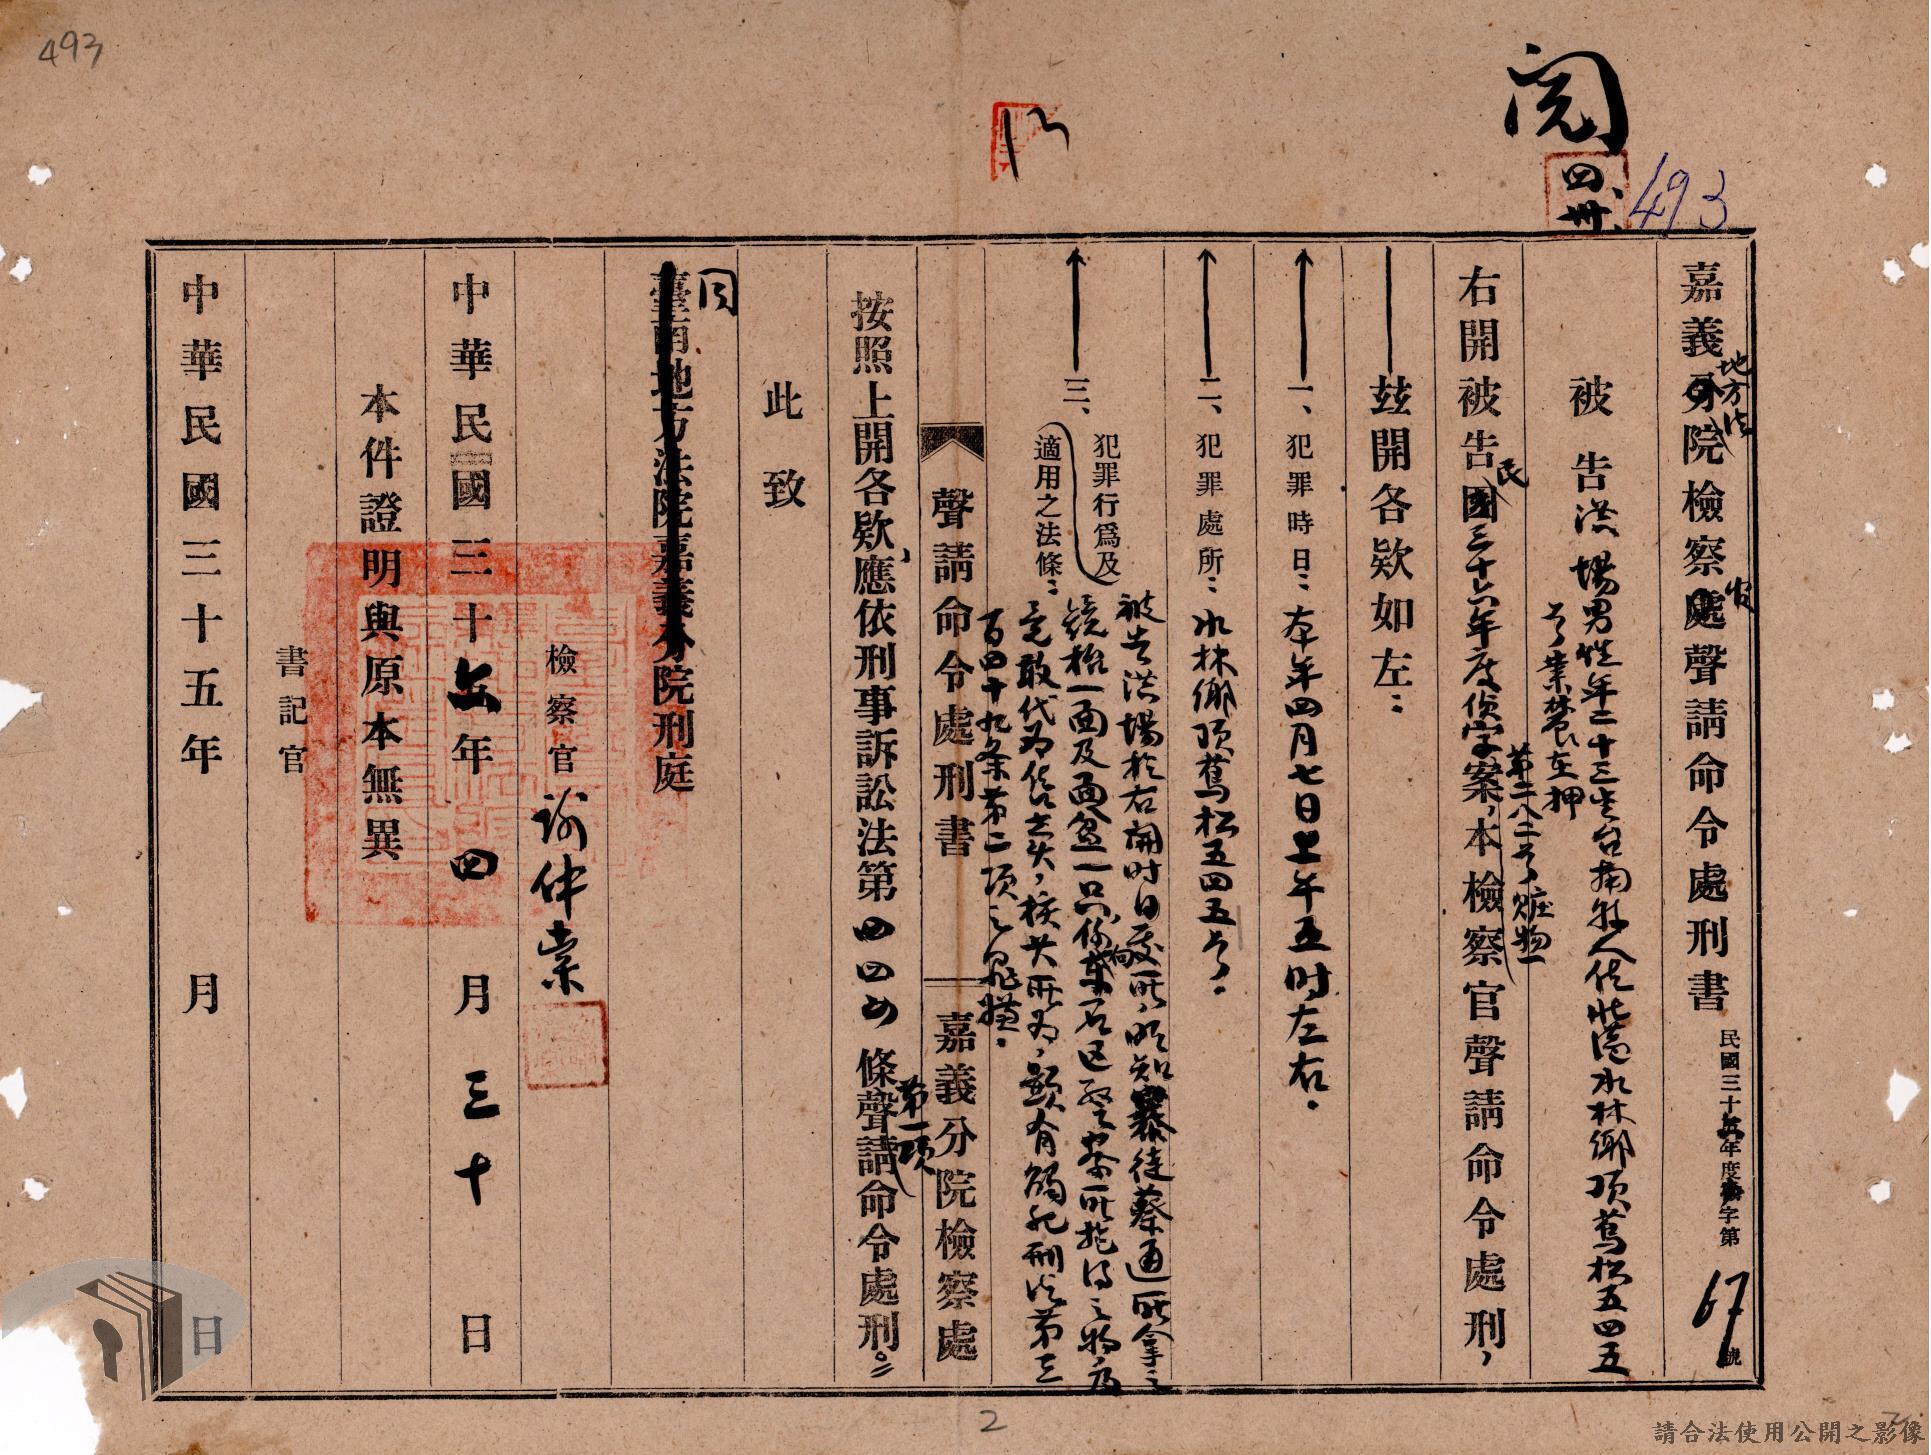 493
閱
四、卅、
493
嘉義地方法院檢察處聲請命令處刑書 民國三十六年度 字第67號
被告 洪場 男性年二十三歲台南縣人住北港水林鄉頂蔦松五四五
号業農在押
右開被告民國三十六年度偵字第二八二号贓物一案,本檢察官聲請命令處刑,
玆開各欵如左:
一、犯罪時日: 本年四月七日上午五时左右.
二、犯罪處所: 水林鄉頂蔦松五四五号.
三、犯罪行爲及適用之法條:
被告洪場於右開时日處所,明知暴徒蔡通所拿之
鏡枱一面及面盆一只,係向東石区警察所搶得之物,
竟敢代为 ,核其所为,顯有觸犯刑法第三
百四十九条第二項之罪嫌.
聲請命令處刑書 嘉義分院檢察處
按照上開各欵,應依刑事訴訟法第四四 條第一項聲請命令處刑。
此致
同
臺南地方法院嘉義分院刑庭
檢察官
中華民國三十六年四月三十日
本件證明與原本無異
書記官
中華民國三十五年 月 日
2
請合法使用公開之影像